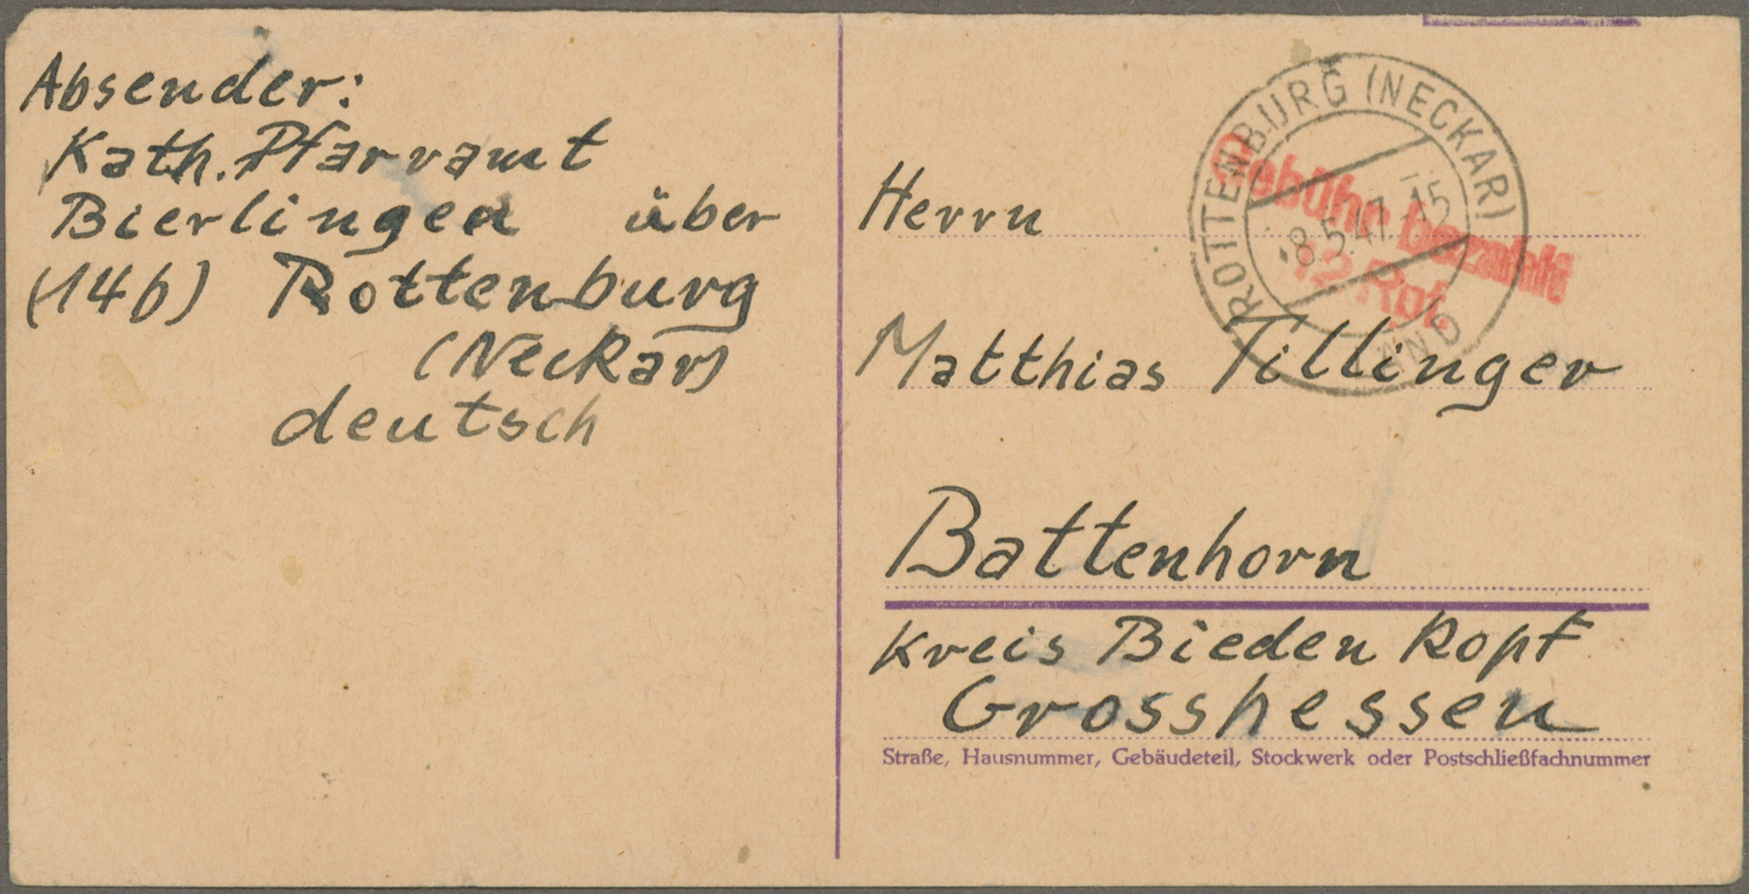 Absender:
Kath. Pfarramt
Bierlingen über
(14b) Rottenburg
(Neckar)
deutsch
ROTTENBURG (NECKAR)
-8.5.47.-15
Gebühr bezahlt
12 Rpf.
Herrn
Matthias Tillinger
Battenhorn
Kreis Biedenkopf
Grosshessen
Straße, Hausnummer, Gebäudeteil, Stockwerk oder Postschließfachnummer